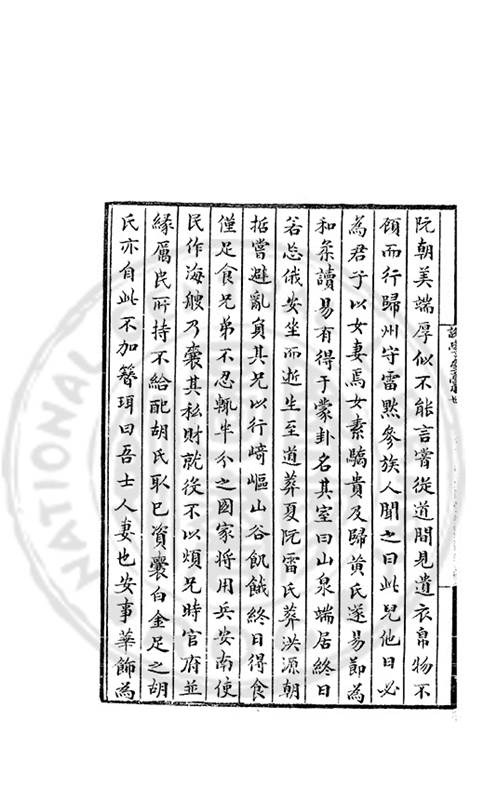 阮朝美端厚似不能言嘗從道間見遺衣帛物不
顧而行歸州守雷黙參族人聞之曰此兒他日必
為君子以女妻焉女素驕貴及歸黄氏遂易節為
和柔讀易有得于蒙卦名其室曰山泉端居終日
若忘俄安坐而逝生至道葬夏阮雷氏葬洪源朝
括嘗避亂負其兄以行﨑嶇山谷飢餓終日得食
僅足食兄弟不忍輒半分之國家將用兵安南使
民作海艘乃囊其私財就役不以煩兄時官府並
緣厲民所持不給配胡氏取巳資橐白金足之胡
氏亦自此不加簪珥曰吾士人妻也安事華飾為
NATIONAL